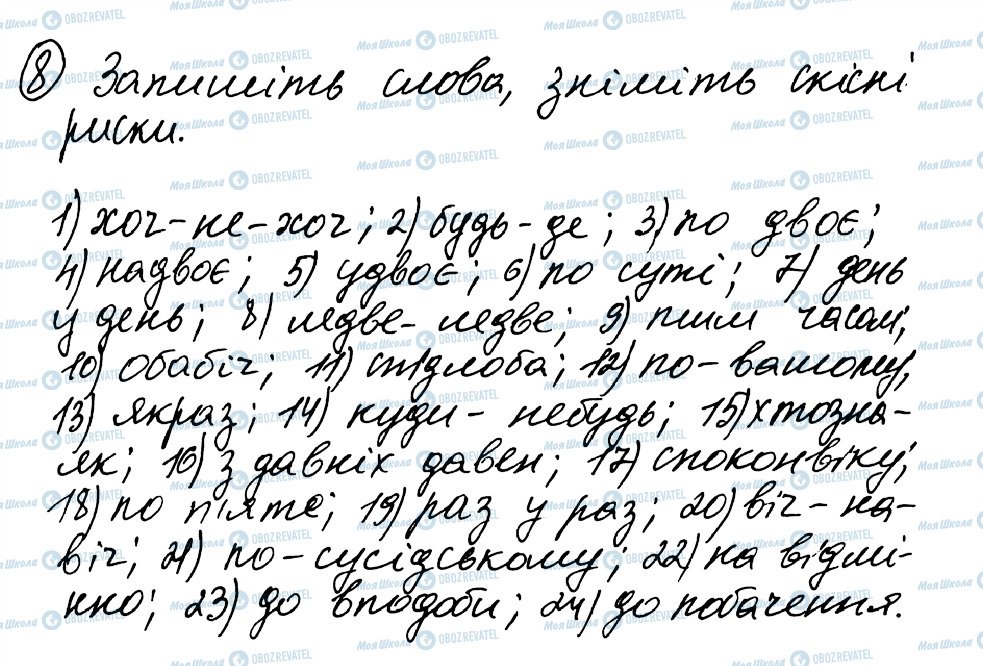 ⑧ Запишіть слова, зніміть скісні
риски.
1) хоч-не-хоч; 2) будь-де; 3) по двоє;
4) надвоє; 5) удвоє; 6) по суті; 7) день
у день; 8) ледве-ледве; 9) тим часом;
10) обабіч; 11) спідлоба; 12) по-вашому;
13) якраз; 14) куди-небудь; 15) хтозна-
як; 16) з давніх давен; 17) споконвіку;
18) по п'яте; 19) раз у раз; 20) віч-на-
віч; 21) по-сусідському; 22) на відмі-
нно; 23) до вподоби; 24) до побачення.